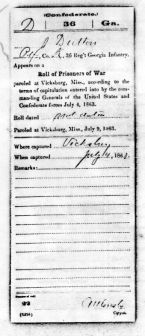 (Confederate.)
D 36 Ga.
J Dutton
Co. K, 36 Reg't Georgia Infantry.
Appears on a
Roll of Prisoners of War
paroled at Vicksburg, Miss., according to the
terms of capitulation entered into by the com-
manding Generals of the United States and
Confederate forces July 4, 1863.
Roll dated not dated
Paroled at Vicksburg, Miss., July 9, 1863.
Where captured Vicksburg
When captured July 4, 1863.
Remarks:
Copyist.